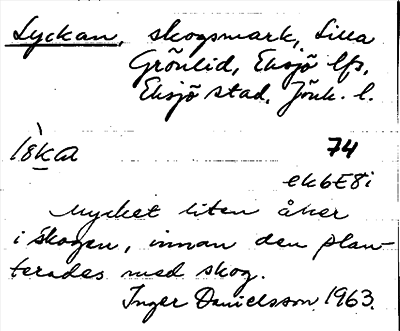 Lyckan, skogsmark, Lilla
Grönlid, Eksjö lfs,
Eksjö stad, Jönk. l.
74
ek6E8i
Mycket liten åker
i skogen, innan den plan-
terades med skog.
Inger Danielsson 1963.